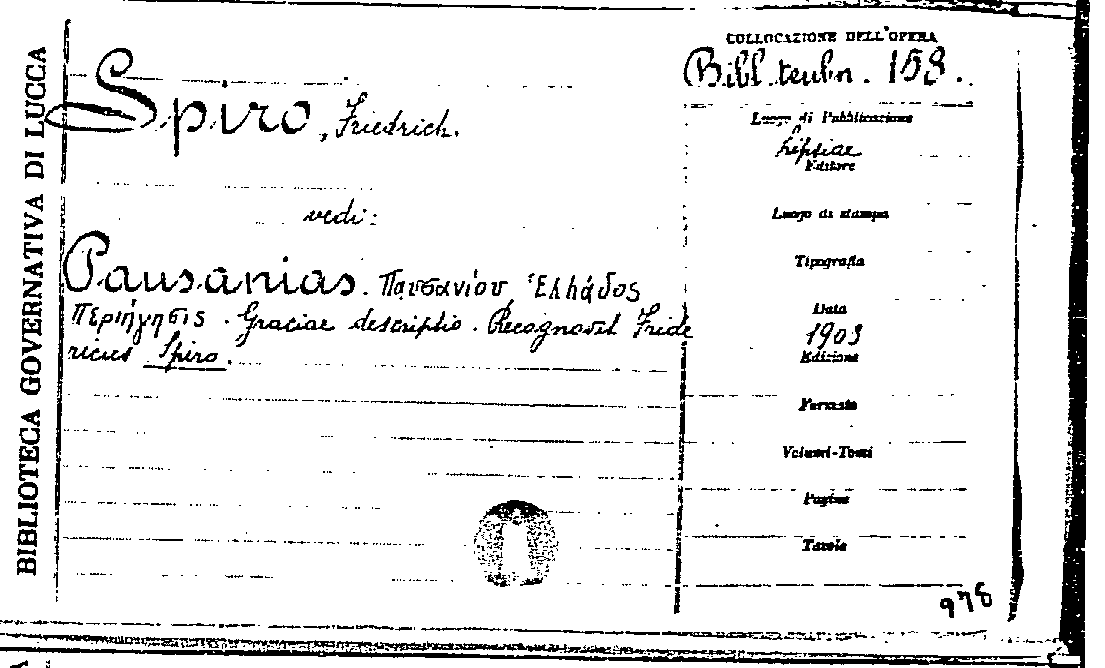 BIBLIOTECA GOVERNATIVA DI LUCCA
Spiro, Friedrich.
vedi:
Pausanias. Παυσανίου Ἑλλάδος
Περιήγησις. Graciae descriptio. Recognovit Fride
ricus Spiro.
COLLOCAZIONE DELL'OPERA
Bibl. teubn. 158.
Luogo di Pubblicazione
Lipsiae
Editore
Luogo di stampa
Tipografia
Data
1903
Edizione
Formato
Volumi-Tomi
Pagine
Tavole
978